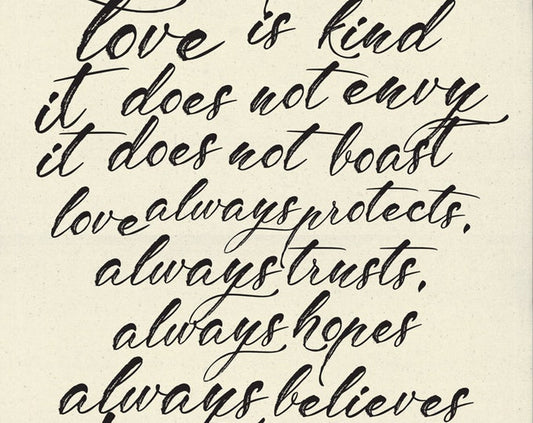 love is kind
it does not envy
it does not boast
love always protects,
always trusts,
always hopes
always believes